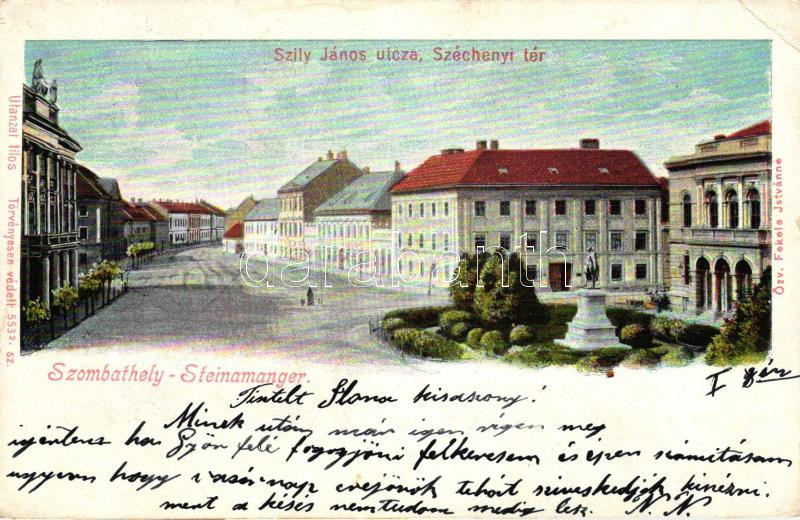 Szily János utcza, Széchenyi tér
Utánzat tilos Törvényesen védett 5532. sz.
Özv. Fekete Istvánné
darabanth
Szombathely - Steinamanger.
Tintelt Ilona kisasony!
Minek után már igen régen meg
igérte ha Győr felé fogogjöni felkeresem és épen számitásom
ugyan hogy vasárnap erejönök tehát sziveskedjék kinézni
ment a késés nemtudom medig lesz. N. N.